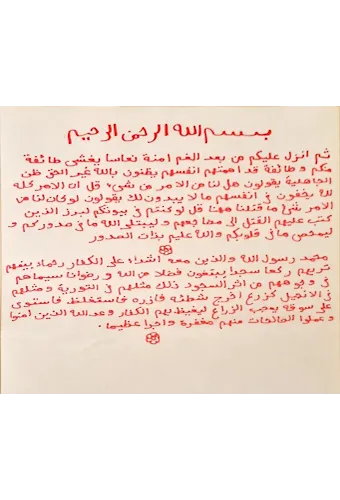 بسم الله الرحمن الرحيم
ثم انزل عليكم من بعد الغم امنة نعاسا يغشى طائفة
منكم وطائفة قد اهمتهم انفسهم يظنون بالله غير الحق ظن
الجاهلية يقولون هل لنا من الامر من شيء قل ان الامر كله
لله يخفون في انفسهم ما لا يبدون لك يقولون لو كان لنا من
الامر شيء ما قتلنا ههنا قل لو كنتم في بيوتكم لبرز الذين
كتب عليهم القتل الى مضاجعهم وليبتلي الله ما في صدوركم و
ليمحص ما في قلوبكم والله عليم بذات الصدور
محمد رسول الله والذين معه اشداء على الكفار رحماء بينهم
تريهم ركعا سجدا يبتغون فضلا من الله و رضوانا سيماهم
في وجوههم من اثر السجود ذلك مثلهم في التورية و مثلهم
في الانجيل كزرع اخرج شطئه فازره فاستغلظ فاستوى
على سوقه يعجب الزراع ليغيظ بهم الكفار وعد الله الذين امنوا
و عملوا الصالحات منهم مغفرة و اجرا عظيما.